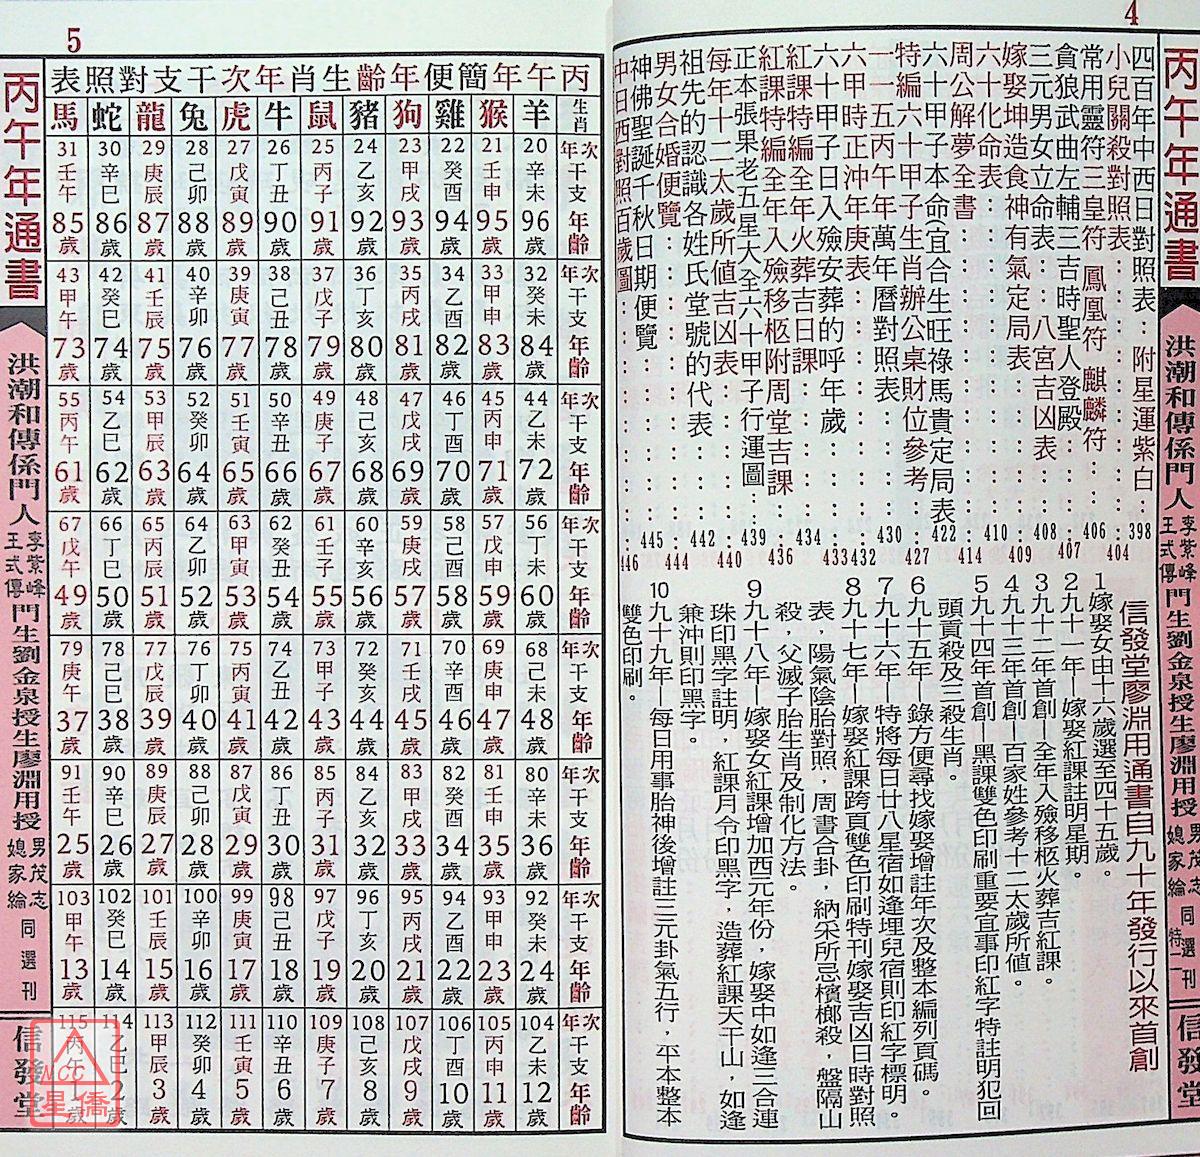 4
丙午年通書
洪潮和傳係門人
李紫峰
王式傳
門生劉金泉授生廖淵用授
男茂志
媳家綸
同選刊
特二一
信發堂
四百年中西日對照表：附星運紫白：398
小兒關殺對照表：404
常用靈符三皇符 鳳凰符 麒麟符：406
貪狼武曲左輔三吉時聖人登殿：407
三元男女立命表：八宮吉凶表：408
嫁娶坤造食神有氣定局表：409
六十化命表：410
周公解夢全書：414
六十甲子本命宜合生旺祿馬貴定局表422
特編六十甲子生肖辦公桌財位參考：427
一一五丙午年萬年曆對照表：430
六甲時正沖年庚表：432
六十甲子日入殮安葬的呼年歲：433
紅課特編全年火葬吉日課：434
紅課特編全年入殮移柩附周堂吉課436
正本張果老五星大全六十甲子行運圖：439
每年十二太歲所值吉凶表：440
祖先的認識各姓氏堂號的代表：442
男女合婚便覽：444
神佛聖誕千秋日期便覽：445
中日西對照百歲圖：446
信發堂廖淵用通書自九十年發行以來首創
1嫁娶女由十六歲選至四十五歲。
2九十一年—嫁娶紅課註明星期。
3九十二年首創—全年入殮移柩火葬吉紅課。
4九十三年首創—百家姓參考十二太歲所値。
5九十四年首創—黑課雙色印刷重要宜事印紅字特註明犯回
頭貢殺及三殺生肖。
6九十五年—錄方便尋找嫁娶增註年次及整本編列頁碼。
7九十六年—特將每日廿八星宿如逢埋兒宿則印紅字標明。
8九十七年—嫁娶紅課跨頁雙色印刷特刊嫁娶吉凶日時對照
表，陽氣陰胎對照，周書合卦，納采所忌檳榔殺，盤隔山
殺，父滅子胎生肖及制化方法。
9九十八年—嫁娶女紅課增加西元年份，嫁娶中如逢三合連
珠印黑字註明，紅課月令印黑字，造葬紅課天干山，如逢
兼沖則印黑字。
10九十九年—每日用事胎神後增註三元卦氣五行，平本整本
雙色印刷。
5
丙午年簡便年齡生肖年次干支對照表
生肖 羊 猴 雞 狗 豬 鼠 牛 虎 兔 龍 蛇 馬
年次 20 21 22 23 24 25 26 27 28 29 30 31
干支 辛未 壬申 癸酉 甲戌 乙亥 丙子 丁丑 戊寅 己卯 庚辰 辛巳 壬午
年齡 96歲 95歲 94歲 93歲 92歲 91歲 90歲 89歲 88歲 87歲 86歲 85歲
年次 32 33 34 35 36 37 38 39 40 41 42 43
干支 癸未 甲申 乙酉 丙戌 丁亥 戊子 己丑 庚寅 辛卯 壬辰 癸巳 甲午
年齡 84歲 83歲 82歲 81歲 80歲 79歲 78歲 77歲 76歲 75歲 74歲 73歲
年次 44 45 46 47 48 49 50 51 52 53 54 55
干支 乙未 丙申 丁酉 戊戌 己亥 庚子 辛丑 壬寅 癸卯 甲辰 乙巳 丙午
年齡 72歲 71歲 70歲 69歲 68歲 67歲 66歲 65歲 64歲 63歲 62歲 61歲
年次 56 57 58 59 60 61 62 63 64 65 66 67
干支 丁未 戊申 己酉 庚戌 辛亥 壬子 癸丑 甲寅 乙卯 丙辰 丁巳 戊午
年齡 60歲 59歲 58歲 57歲 56歲 55歲 54歲 53歲 52歲 51歲 50歲 49歲
年次 68 69 70 71 72 73 74 75 76 77 78 79
干支 己未 庚申 辛酉 壬戌 癸亥 甲子 乙丑 丙寅 丁卯 戊辰 己巳 庚午
年齡 48歲 47歲 46歲 45歲 44歲 43歲 42歲 41歲 40歲 39歲 38歲 37歲
年次 80 81 82 83 84 85 86 87 88 89 90 91
干支 辛未 壬申 癸酉 甲戌 乙亥 丙子 丁丑 戊寅 己卯 庚辰 辛巳 壬午
年齡 36歲 35歲 34歲 33歲 32歲 31歲 30歲 29歲 28歲 27歲 26歲 25歲
年次 92 93 94 95 96 97 98 99 100 101 102 103
干支 癸未 甲申 乙酉 丙戌 丁亥 戊子 己丑 庚寅 辛卯 壬辰 癸巳 甲午
年齡 24歲 23歲 22歲 21歲 20歲 19歲 18歲 17歲 16歲 15歲 14歲 13歲
年次 104 105 106 107 108 109 110 111 112 113 114 115
干支 乙未 丙申 丁酉 戊戌 己亥 庚子 辛丑 壬寅 癸卯 甲辰 乙巳 丙午
年齡 12歲 11歲 10歲 9歲 8歲 7歲 6歲 5歲 4歲 3歲 2歲 1歲
丙午年通書
洪潮和傳係門人
李紫峰
王式傳
門生劉金泉授生廖淵用授
男茂志
媳家綸
同選刊
信發堂
NCC
星僑